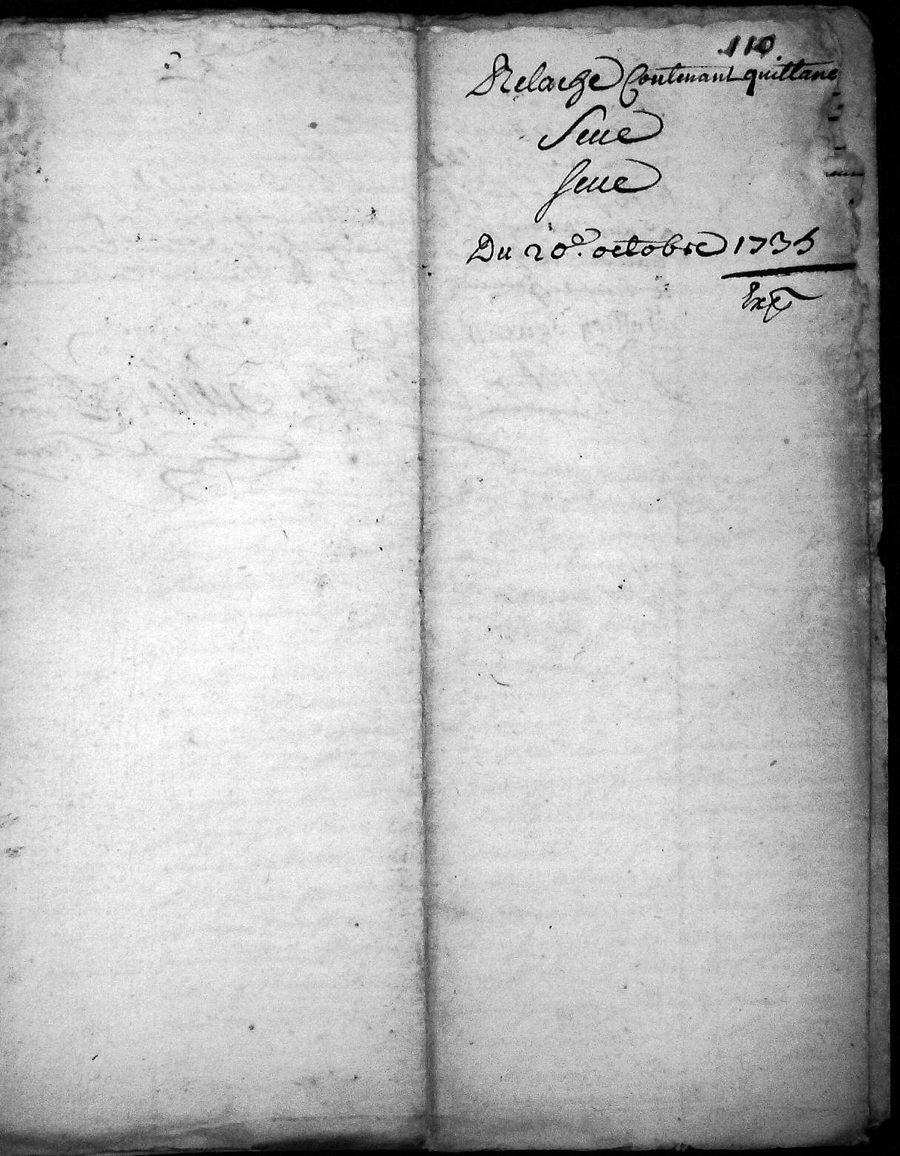 110
Relache Contenant quittance
Seue
Seue
Du 20e. octobre 1735
Exp